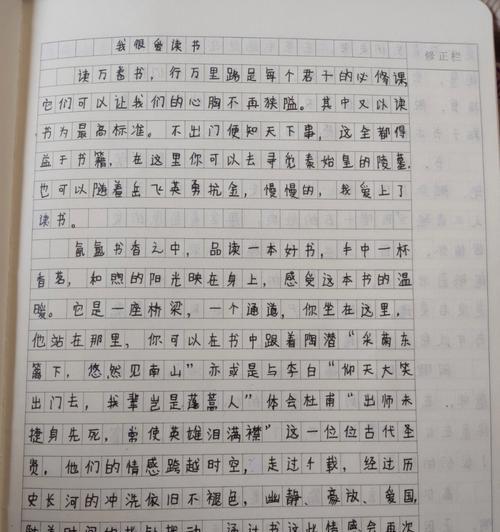 我很爱读书
修正栏
读万卷书，行万里路是每个君子的必修课
它们可以让我们的心胸不再狭隘。其中又以读
书为最高标准。不出门便知天下事，这全都得
益于书籍，在这里你可以去寻觅秦始皇的陵墓，
也可以随着岳飞英勇抗金，慢慢的，我爱上了
读书。
氤氲书香之中，品读一本好书，手中一杯
香茗，和煦的阳光映在身上，感受这本书的温
暖。它是一座桥梁，一个通道，你坐在这里，
他站在那里，你可以在书中跟着陶潜“采菊东
篱下，悠然见南山”亦或是与李白“仰天大笑
出门去，我辈岂是蓬蒿人”体会杜甫“出师未
捷身先死，常使英雄泪满襟”这一位位古代圣
贤，他们的情感跨越时空，走过千载，经过历
史长河的冲洗依旧不褪色，幽静、豪放、爱国，
随着时间的推移挪动，通过书这此情感会再次